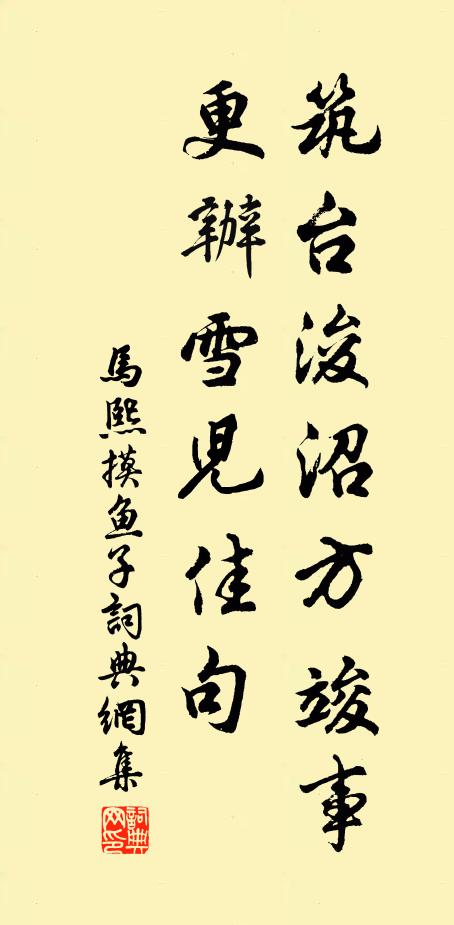 筑台浚沼方竣事
更辦雪児佳句
馬熙摸鱼子詞典網集
詞典网印